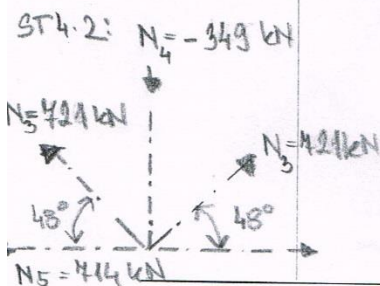 ST4.2: N4=-349 kN
N3=721kN
N3=721kN
48° 48°
N5=714kN